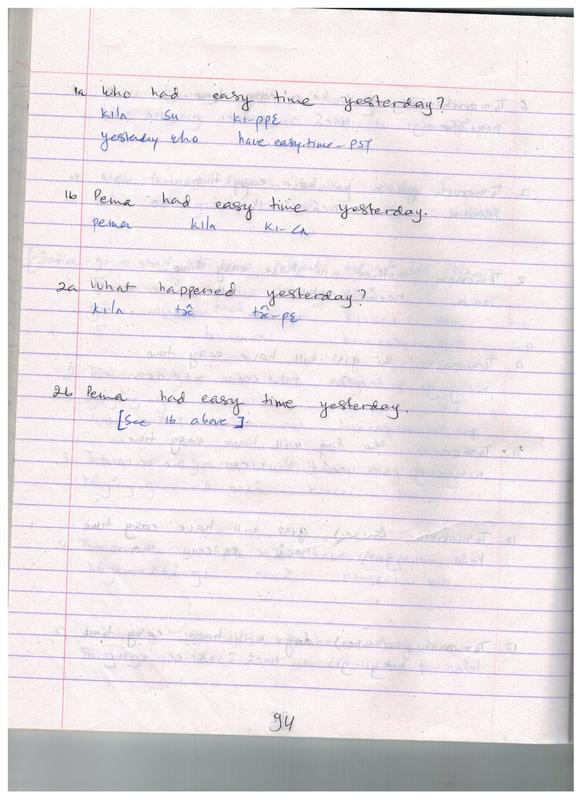 1a Who had easy time yesterday?
kiln su ki-ppɛ
yestaday who have.easy.time-PST
1b Pema had easy time yesterday.
pema kiln ki-
2a What happened yesterday?
kiln tɜ̂ tɜ̂-pɛ
2b Pema had easy time yesterday.
[See 1b above].
94